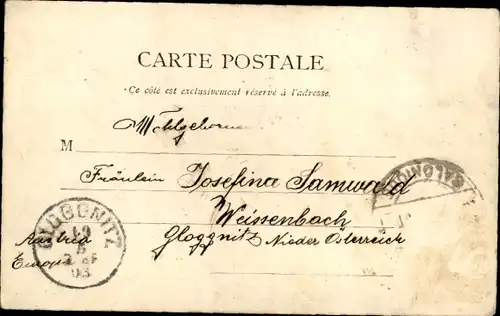 CARTE POSTALE
Ce côté est exclusivement réservé à l'adresse.
M
Fräulein Josefina Samwald
Weissenbach
Gloggnitz Nieder Österreich
Austria
Europa
GLOGGNITZ
SALONIQUE